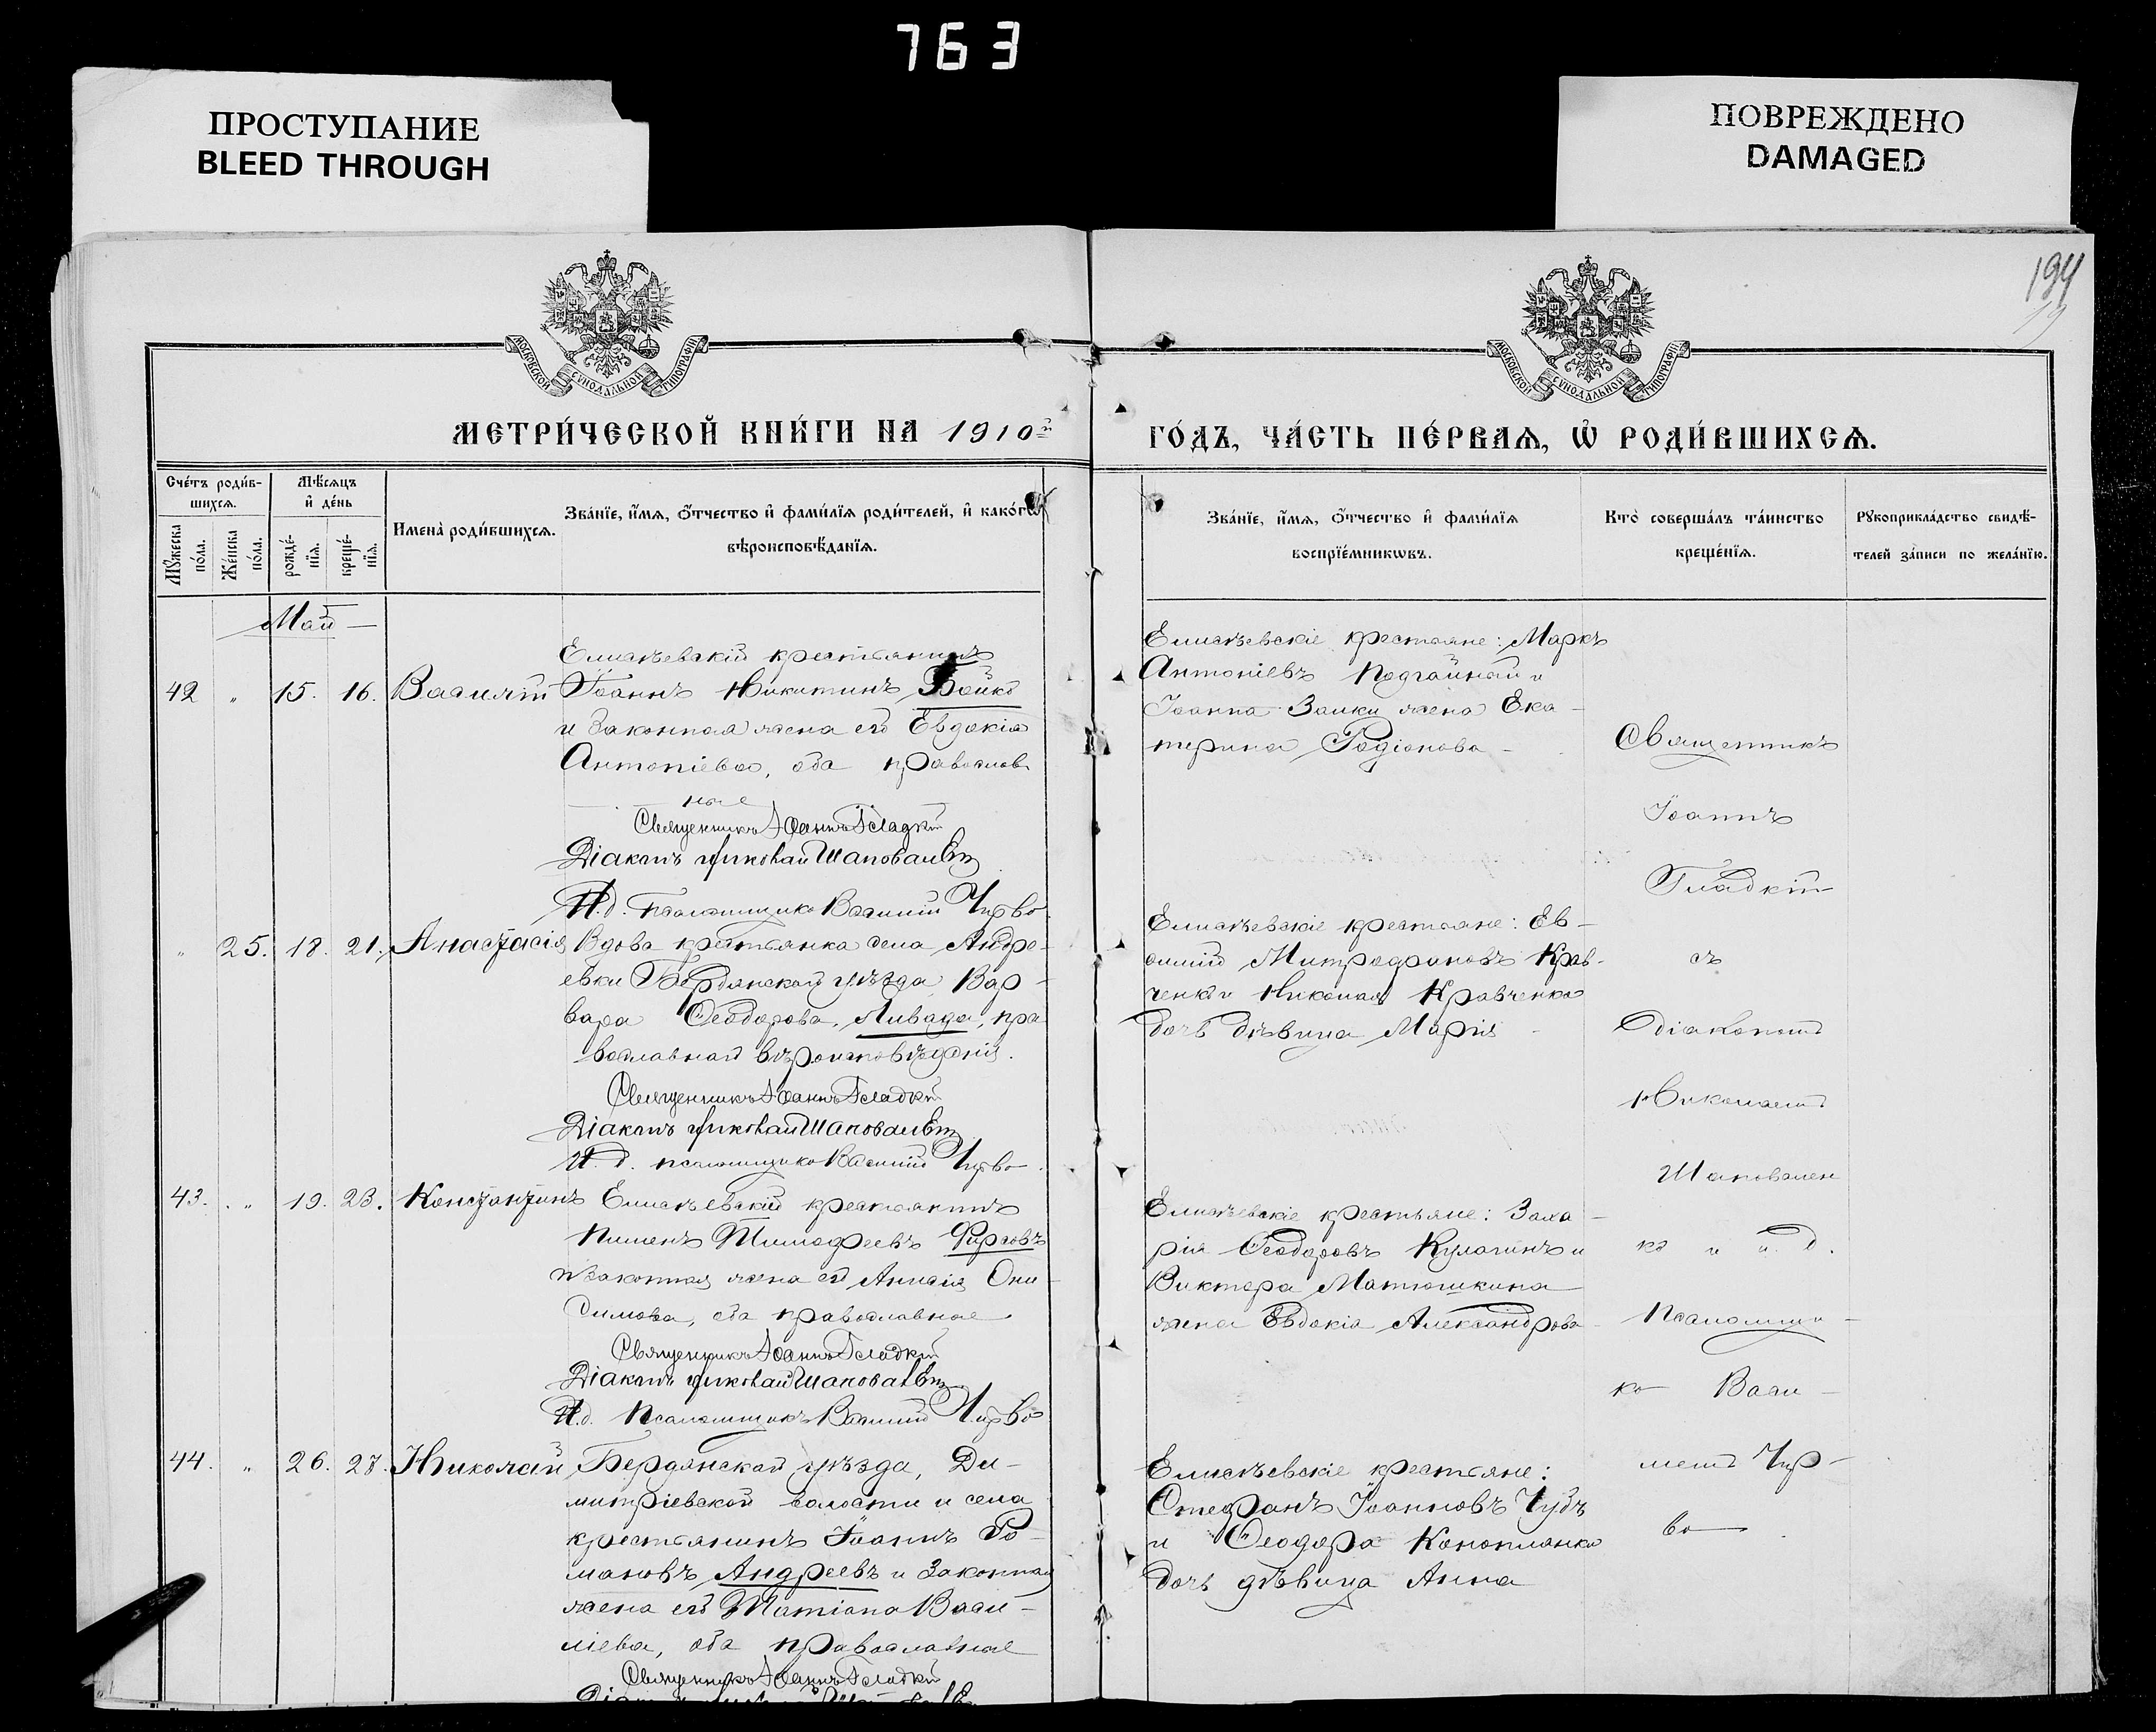 763
ПРОСТУПАНИЕ
BLEED THROUGH
ПОВРЕЖДЕНО
DAMAGED
194
МОСКОВСКОЙ СУНОДАЛЬНОЙ ТИПОГРАФІИ
МОСКОВСКОЙ СУНОДАЛЬНОЙ ТИПОГРАФІИ
МЕТРИ́ЧЕСКОЙ КНИ́ГИ НА 1910
ГО́ДЪ, ЧА́СТЬ ПЕ́РВАѦ, Ѡ҆ РОДИ́ВШИХСѦ.
Сче́тъ роди́в-
шихсѧ.
Мꙋ́жеска по́ла.
Же́нска по́ла.
Мѣ́сѧцъ
и҆ де́нь
рожде́-
нїѧ.
креще́-
нїѧ.
Имена̀ роди́вшихсѧ.
Зва́нїе, и҆́мѧ, ѻ҆́тчество и҆ фами́лїѧ роди́телей, и҆ како́гѡ
вѣроисповѣ́данїѧ.
Зва́нїе, и҆́мѧ, ѻ҆́тчество и҆ фами́лїѧ
воспрїе́мникѡвъ.
Кто̀ соверша́лъ та́инство
креще́нїѧ.
Рꙋкоприкла́дство свидѣ́-
телей за́писи по жела́нїю.
Май
42 " 15. 16. Василій
Елисѣевскій крестьянинъ
Іоаннъ Никитинъ Бойко
и законная жена его Евдокія
Антоніева, оба православ
ные
Священникъ Іоаннъ Гладкій
Діаконъ Николай Шаповаленко
И.д. псаломщика Василій Чирво
Елисѣевскіе крестьяне: Маркъ
Антоніевъ Подгайный и
Іоанна Заики жена Ека-
терина Родіонова -
" 25. 18. 21. Анастасія
Вдова крестьянка села Андре-
евки Бердянскаго уѣзда, Вар-
вара Ѳеодорова Ливада, пра
вославнаго вѣроисповѣданія.
Священникъ Іоаннъ Гладкій
Діаконъ Николай Шаповаленко
И.д. псаломщика Василій Чирво
Елисѣевскіе крестьяне: Ев-
Митрофановъ Крав-
ченко и Николая Кравченка
дочь дѣвица Марія -
43. " 19. 23. Константинъ
Елисѣевскій крестьянинъ
Пименъ Тимофеевъ Фирсовъ
и законная жена его Анисія Они-
симова, оба православные
Священникъ Іоаннъ Гладкій
Діаконъ Николай Шаповаленко
И.д. Псаломщика Василій Чирво
Елисѣевскіе крестьяне: Заха-
рія Ѳеодоровъ Кулагинъ и
Виктора Матюшкина
жена Евдокія Александрова
44. " 26. 27. Николай
Бердянскаго уѣзда, Ди-
митріевской волости и села
крестьянинъ Іоаннъ Ро-
мановъ Андреевъ и законная
жена его Татіана Васи-
ліева, оба православные
Священникъ Іоаннъ Гладкій
Елисѣевскіе крестьяне:
Стефанъ Іоанновъ Чубъ
и Ѳеодора Коноплянка
дочь дѣвица Анна
Священникъ
Іоаннъ
Гладкій
съ
діакономъ
Николаемъ
Шаповален
ко и и. д.
Псаломщи-
ка Васи-
ліемъ Чир-
во